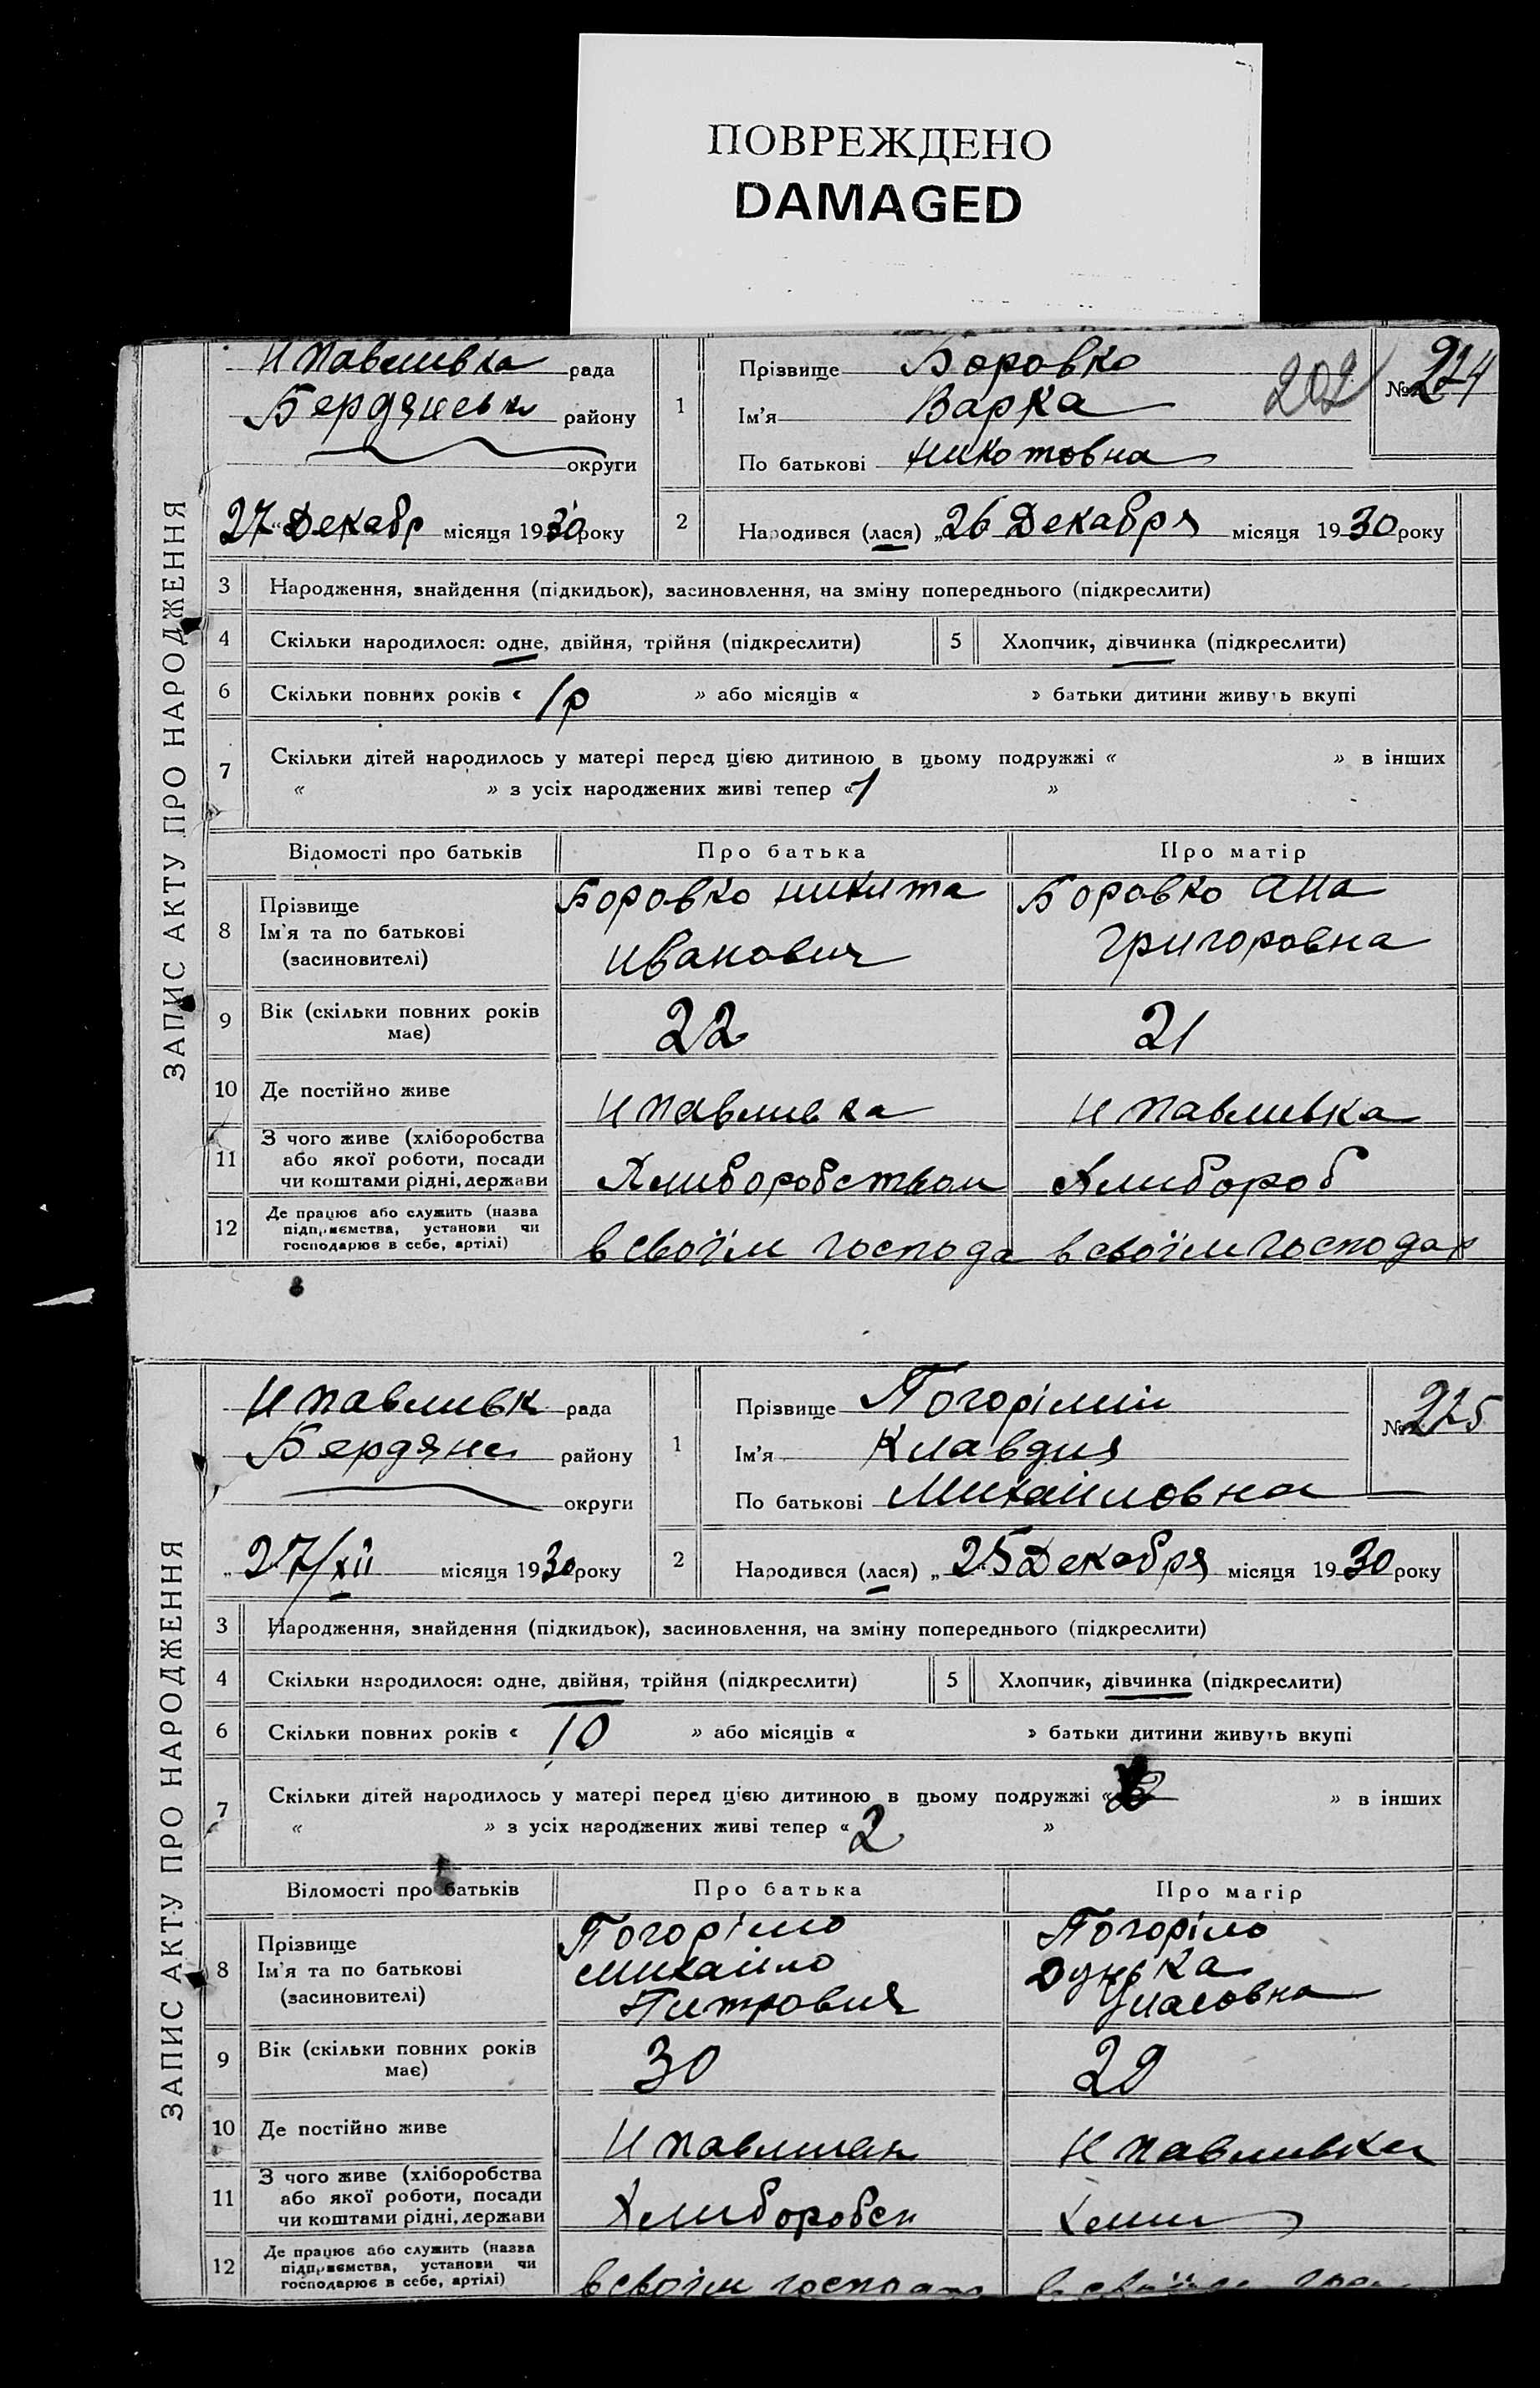 ПОВРЕЖДЕНО
DAMAGED
ЗАПИС АКТУ ПРО НАРОДЖЕННЯ
Н павливка рада
Бердянськ району
округи
27 Декабр місяця 1930 року
1
Прізвище Боровко
Ім'я Варка
По батькові Никотовна
202
№ 224
2 Народився (лася) „26 Декабря місяця 1930 року
3 Народження, знайдення (підкидьок), засиновлення, на зміну попереднього (підкреслити)
4 Скільки народилося: одне, двійня, трійня (підкреслити) 5 Хлопчик, дівчинка (підкреслити)
6 Скільки повних років « 1р » або місяців « » батьки дитини живуть вкупі
7 Скільки дітей народилось у матері перед цією дитиною в цьому подружжі « » в інших
« » з усіх народжених живі тепер «1 »
Відомості про батьків Про батька Про матір
8 Прізвище
Ім'я та по батькові
(засиновителі)
Боровко Никита
Иванович
Боровко Ана
Григоровна
9 Вік (скільки повних років
має)
22 21
10 Де постійно живе Н павливка Н павливка
11 З чого живе (хліборобства
або якої роботи, посади
чи коштами рідні, держави
Хлиборобством Хлибороб
12 Де працює або служить (назва
підприємства, установи чи
господарює в себе, артілі)
в своїм господа в своїм господар
ЗАПИС АКТУ ПРО НАРОДЖЕННЯ
Н павливк рада
Бердянс району
округи
„27/XII місяця 1930 року
1
Прізвище Погорілий
Ім'я Клавдия
По батькові Михайловна
№ 225
2 Народився (лася) „25 Декабря місяця 1930 року
3 Народження, знайдення (підкидьок), засиновлення, на зміну попереднього (підкреслити)
4 Скільки народилося: одне, двійня, трійня (підкреслити) 5 Хлопчик, дівчинка (підкреслити)
6 Скільки повних років « 10 » або місяців « » батьки дитини живуть вкупі
7 Скільки дітей народилось у матері перед цією дитиною в цьому подружжі « » в інших
« » з усіх народжених живі тепер «2 »
Відомості про батьків Про батька Про матір
8 Прізвище
Ім'я та по батькові
(засиновителі)
Погоріло
Михайло
Питрович
Погоріло
Дунька
Уласовна
9 Вік (скільки повних років
має)
30 29
10 Де постійно живе Н павливк Н павливка
11 З чого живе (хліборобства
або якої роботи, посади
чи коштами рідні, держави
Хлиборобсн
12 Де працює або служить (назва
підприємства, установи чи
господарює в себе, артілі)
в своїм господ в своїм